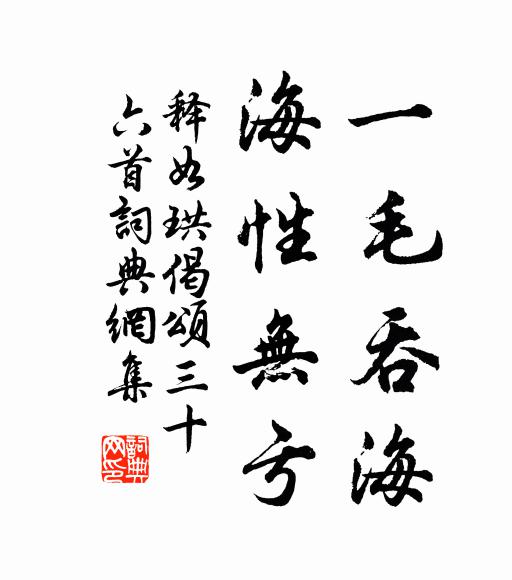 一毛吞海
海性無亏
释如珙偈頌三十
六首詞典網集
詞典
网印